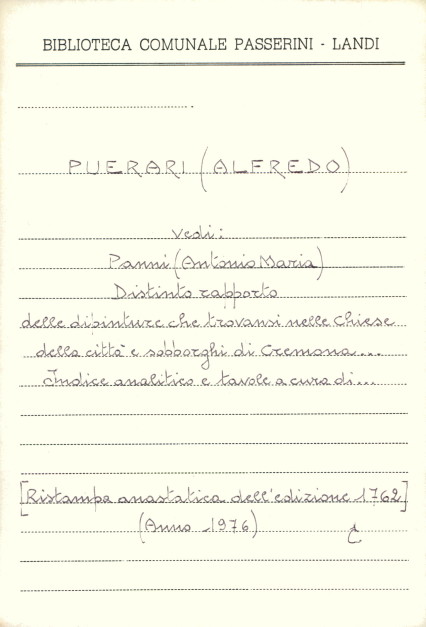 BIBLIOTECA COMUNALE PASSERINI - LANDI
PUERARI (ALFREDO)
vedi:
Panni (Antonio Maria)
Distinto rapporto
delle dipinture che trovansi nelle Chiese
della città e sobborghi di Cremona...
Indice analitico e tavole a cura di...
[Ristampa anastatica dell'edizione 1762]
(Anno 1976)